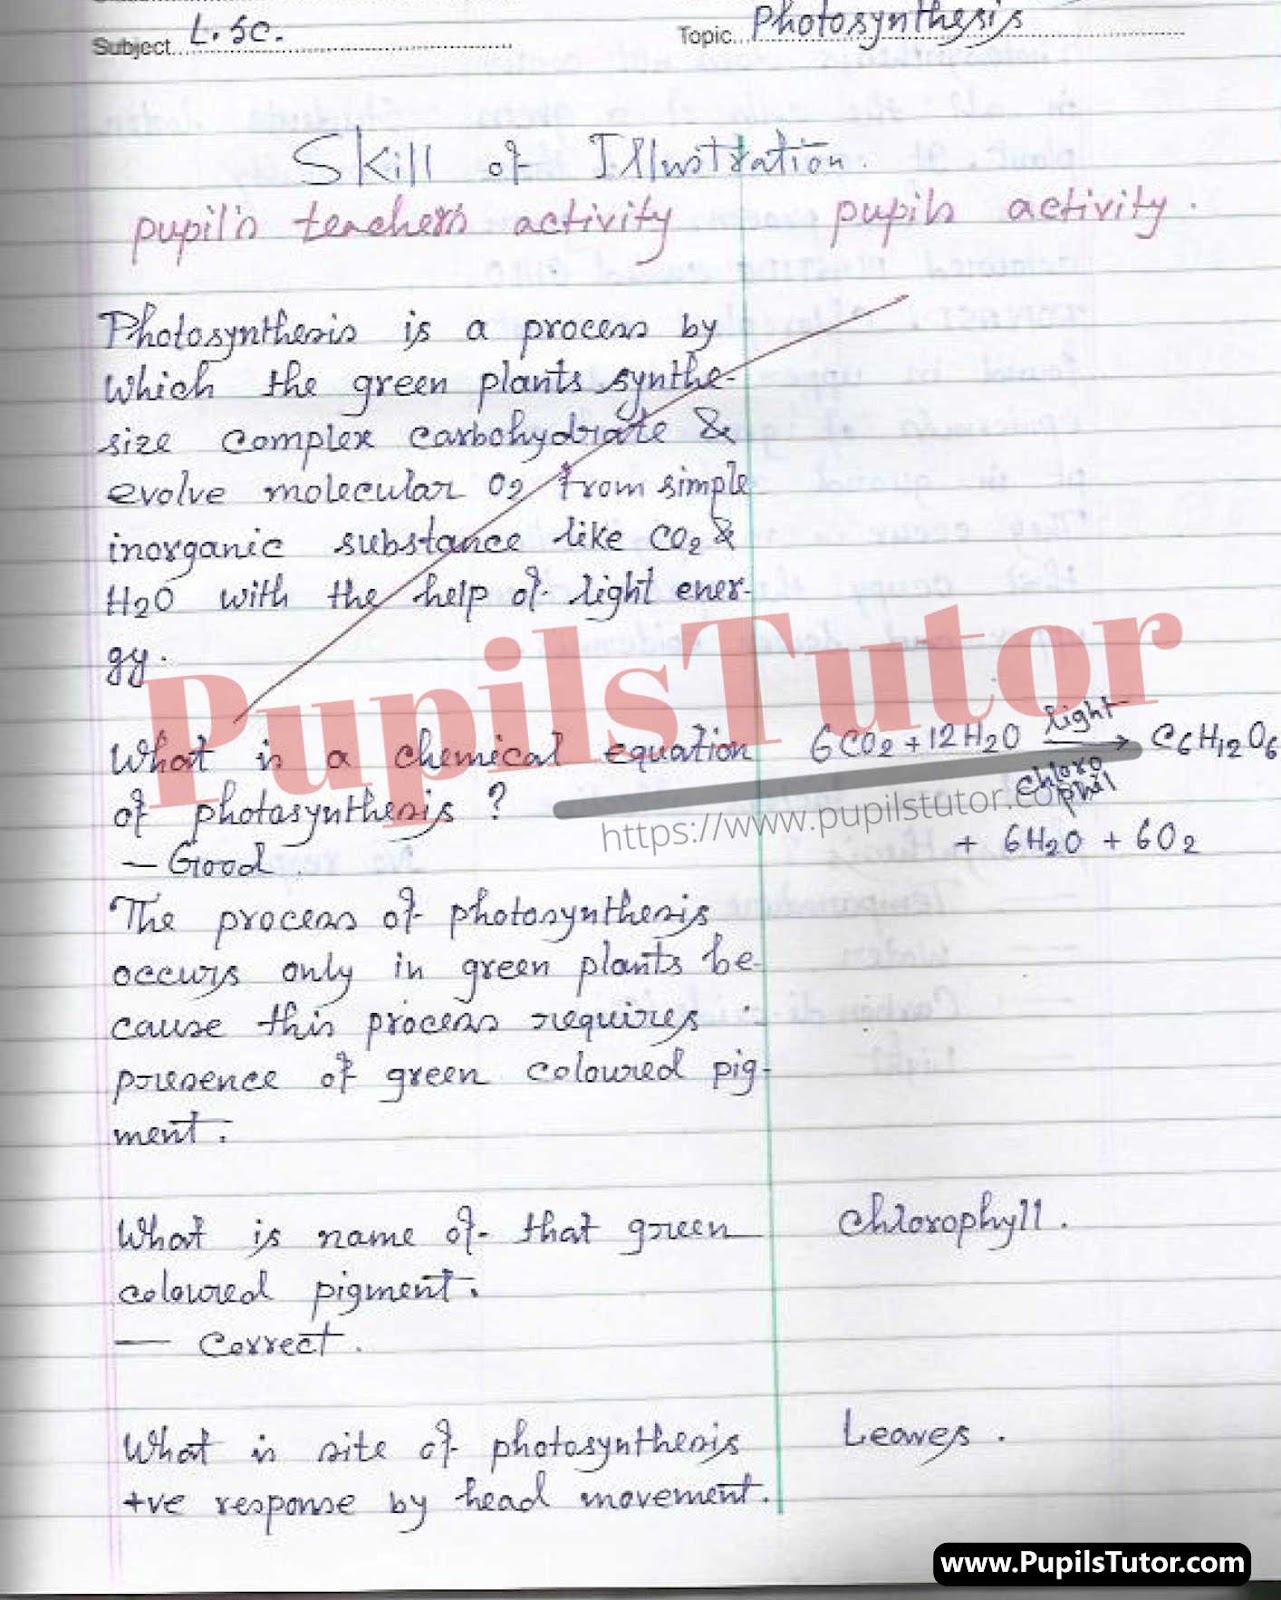 Subject L.SC. Topic Photosynthesis
Skill of Illustration.
pupil's teacher's activity pupils activity.
Photosynthesis is a process by
which the green plants synthe-
size complex carbohydrate &
evolve molecular O2 from simple
inorganic substance like CO2 &
H2O with the help of light ener-
gy.
PupilsTutor
What is a chemical equation 6CO2 + 12H2O light → C6H12O6
of photosynthesis ? chloro
phil
https://www.pupilstutor.com
+ 6H2O + 6O2
— Good.
The process of photosynthesis
occurs only in green plants be-
cause this process requires
presence of green coloured pig-
ment.
What is name of that green Chlorophyll.
coloured pigment.
— Correct.
What is site of photosynthesis Leaves.
+ve response by head movement.
www.PupilsTutor.com